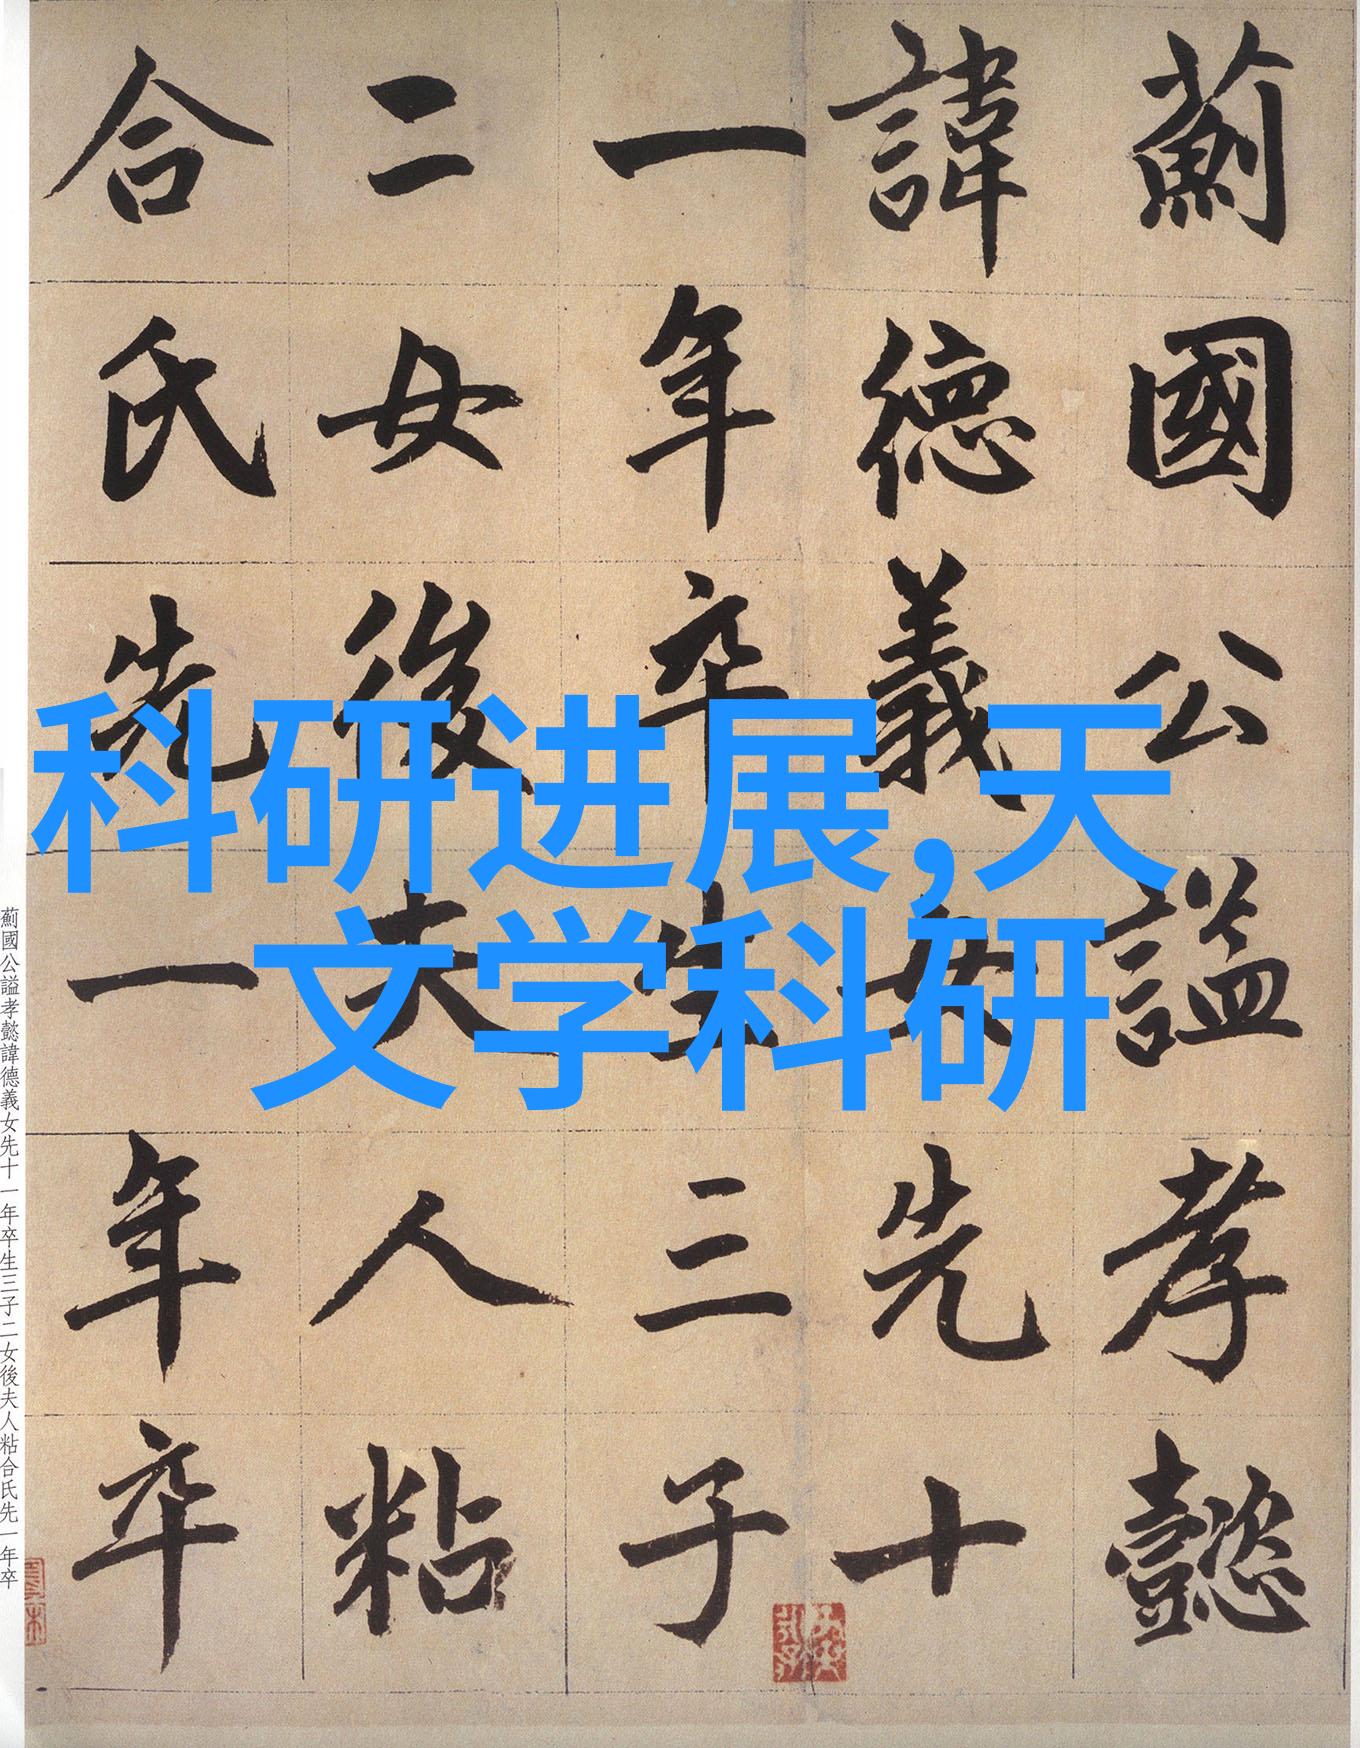 薊國公謚孝懿
諱德義女先十
一年卒生三子
二女後夫人粘
合氏先一年卒
科研进展,天
文学科研
薊國公謚孝懿諱德義女先十一年卒生三子二女後夫人粘合氏先一年卒